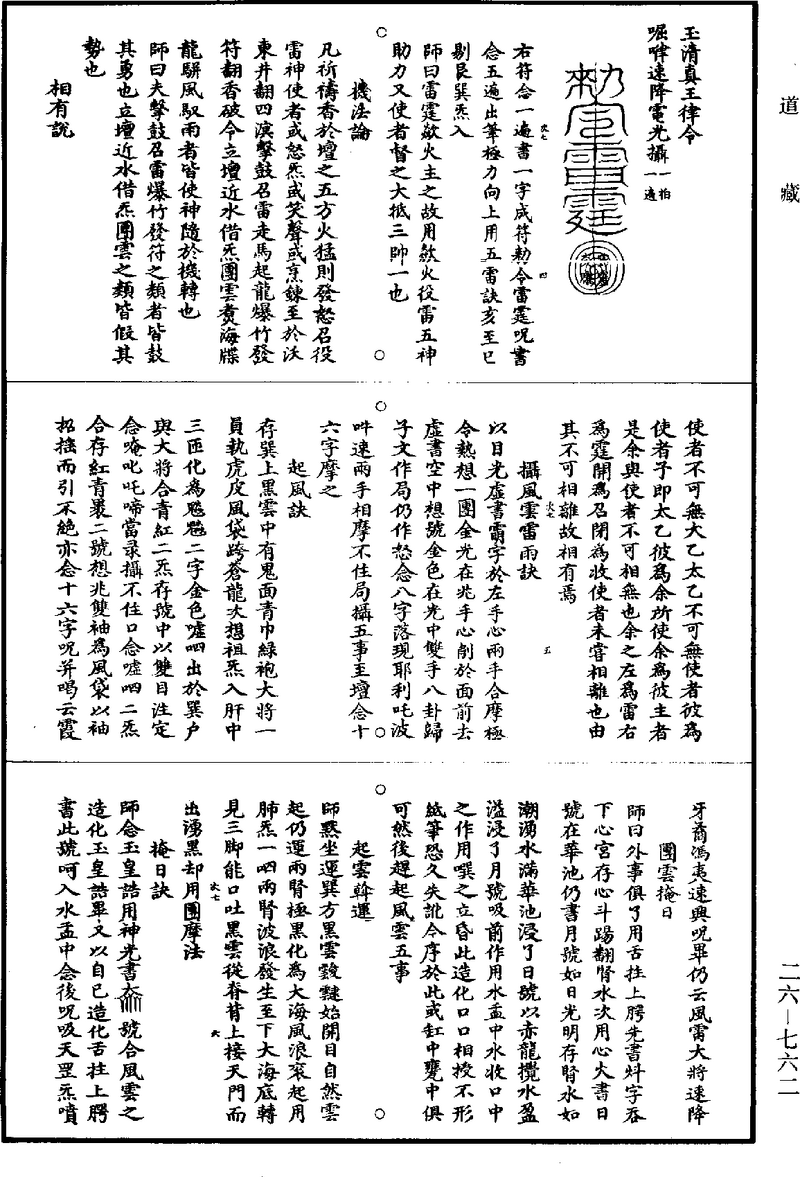 道藏
玉清真王律令
嘊㖃速降電光攝一拍一遍
勅召雷霆
右符念一遍書一字成符勅令雷霆呪書
念五遍出筆極力向上用五雷訣亥至巳
剔艮巽炁入
師曰雷霆歘火主之故用歘火役雷五神
助力又使者督之大抵三帥一也
機法論
凡祈禱香於壇之五方火猛則發怒召役
雷神使者或怒炁或笑聲或烹鍊至於沃
東井翻四溟擊鼓召雷走馬起龍爆竹發
符翻香破令立壇近水借炁團雲煑海牒
龍駢風馭雨者皆使神隨於機轉也
師曰夫擊鼓召雷爆竹發符之類者皆鼓
其勇也立壇近水借炁團雲之類皆假其
勢也
相有說
使者不可無太乙太乙不可無使者彼爲
使者予即太乙彼爲余所使余爲彼主者
是余與使者不可相無也余之左爲雷右
爲霆開爲召閉爲收使者未嘗相離也由
其不可相離故相有焉
攝風雲雷雨訣
以日光虛書霸字於左手心兩手合摩極
令熱想一團金光在兆手心削於面前去
虛書空中想號金色在光中雙手八卦歸
子文作局仍作怒念八字落現耶利吒波
吽速兩手相摩不住局攝五事至壇念十
六字摩之
起風訣
存巽上黑雲中有鬼面青巾綠袍大將一
員執虎皮風袋跨蒼龍次想祖炁入肝中
三匝化爲颩颩二字金色噓呬出於巽户
與大將合青紅二炁存號中以雙目注定
念唵叱吒啼當录攝不住口念噓呬二炁
合存紅青裹二號想兆雙袖爲風袋以袖
招搖而引不絕亦念十六字呪并喝云霞
牙喬馮夷速興呪畢仍云風雷大將速降
團雲掩日
師曰外事俱了用舌拄上腭先書炓字吞
下心宮存心斗踢翻腎水次用心火書日
號在華池仍書月號如日光明存腎水如
潮湧水滿華池浸了日號以赤龍攪水盈
溢浸了月號吸前作用水盂中水收口中
之作用噀之立昏此造化口口相授不形
紙筆恐久失訛今序於此或缸中甕中俱
可然後趕起風雲五事
起雲斡運
師黙坐運巽方黑雲靉靆始開目自然雲
起仍運兩腎極黑化爲大海風浪衮起用
肺炁一呬兩腎波浪發生至下大海底轉
見三脚能口吐黑雲從脊背上接天門而
出湧黑却用團摩法
掩日訣
師念玉皇誥用神光書號合風雲之
造化玉皇誥畢又以自己造化舌拄上腭
書此號呵入水盂中念後呪吸天罡炁噴
二六—七六二